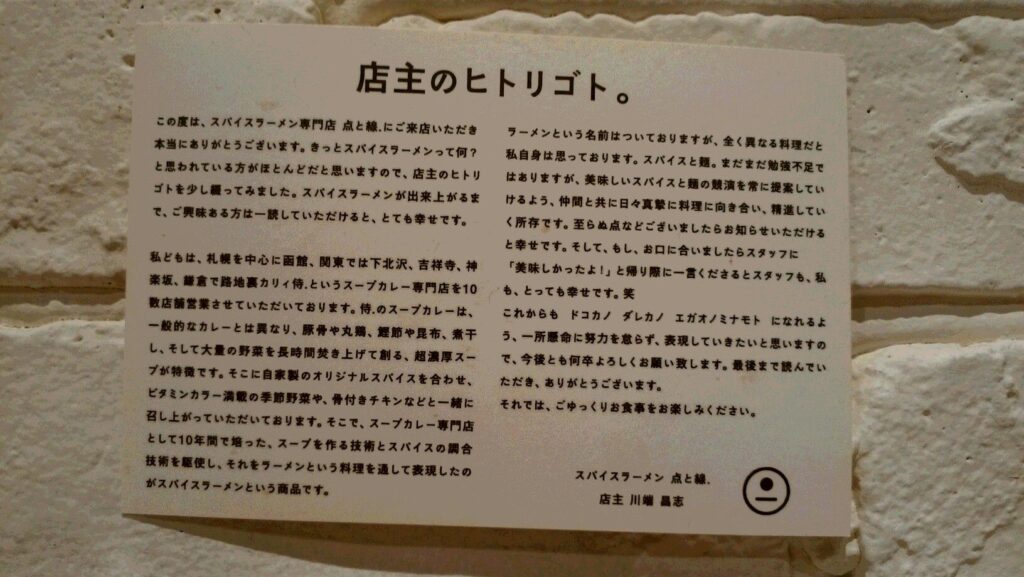 店主のヒトリゴト。
この度は、スパイスラーメン専門店 点と線.にご来店いただき
本当にありがとうございます。きっとスパイスラーメンって何？
と思われている方がほとんどだと思いますので、店主のヒトリ
ゴトを少し綴ってみました。スパイスラーメンが出来上がるま
で、ご興味ある方は一読していただけると、とても幸せです。
私どもは、札幌を中心に函館、関東では下北沢、吉祥寺、神
楽坂、鎌倉で路地裏カリィ侍.というスープカレー専門店を10
数店舗営業させていただいております。侍.のスープカレーは、
一般的なカレーとは異なり、豚骨や丸鶏、鰹節や昆布、煮干
し、そして大量の野菜を長時間焚き上げて創る、超濃厚スー
プが特徴です。そこに自家製のオリジナルスパイスを合わせ、
ビタミンカラー満載の季節野菜や、骨付きチキンなどと一緒に
召し上がっていただいております。そこで、スープカレー専門店
として10年間で培った、スープを作る技術とスパイスの調合
技術を駆使し、それをラーメンという料理を通して表現したの
がスパイスラーメンという商品です。
ラーメンという名前はついておりますが、全く異なる料理だと
私自身は思っております。スパイスと麺。まだまだ勉強不足で
はありますが、美味しいスパイスと麺の競演を常に提案してい
けるよう、仲間と共に日々真摯に料理に向き合い、精進してい
く所存です。至らぬ点などございましたらお知らせいただける
と幸せです。そして、もし、お口に合いましたらスタッフに
「美味しかったよ！」と帰り際に一言くださるとスタッフも、私
も、とっても幸せです。笑
これからも ドコカノ ダレカノ エガオノミナモト になれるよ
う、一所懸命に努力を怠らず、表現していきたいと思いますの
で、今後とも何卒よろしくお願い致します。最後まで読んでい
ただき、ありがとうございます。
それでは、ごゆっくりお食事をお楽しみください。
スパイスラーメン 点と線.
店主 川端 昌志